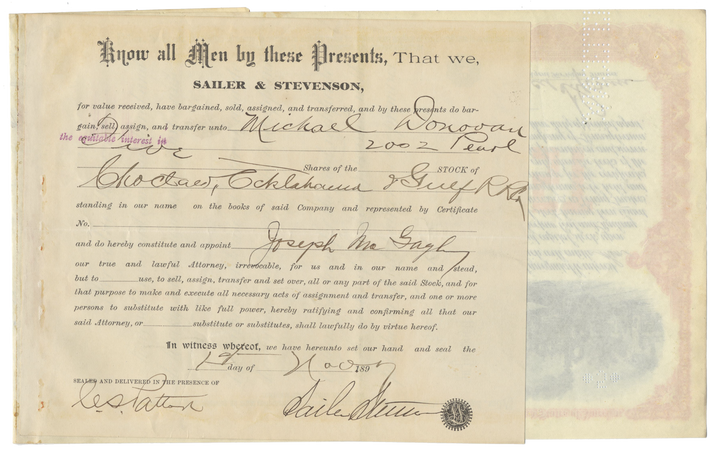 Know all Men by these Presents, That we,
SAILER & STEVENSON,
for value received, have bargained, sold, assigned, and transferred, and by these presents do bar-
gain, sell, assign, and transfer unto Michael Donovan
the equitable interest in
Five 2002 Pearl
Shares of the STOCK of
Choctaw, Ocklahama & Gulf R R Co
standing in our name on the books of said Company and represented by Certificate
No.
and do hereby constitute and appoint Joseph McGagh
our true and lawful Attorney, irrevocable, for us and in our name and stead,
but to use, to sell, assign, transfer and set over, all or any part of the said Stock, and for
that purpose to make and execute all necessary acts of assignment and transfer, and one or more
persons to substitute with like full power, hereby ratifying and confirming all that our
said Attorney, or substitute or substitutes, shall lawfully do by virtue hereof.
In witness whereof, we have hereunto set our hand and seal the
day of Nov 189
SEALED AND DELIVERED IN THE PRESENCE OF
Sailer Stevenson